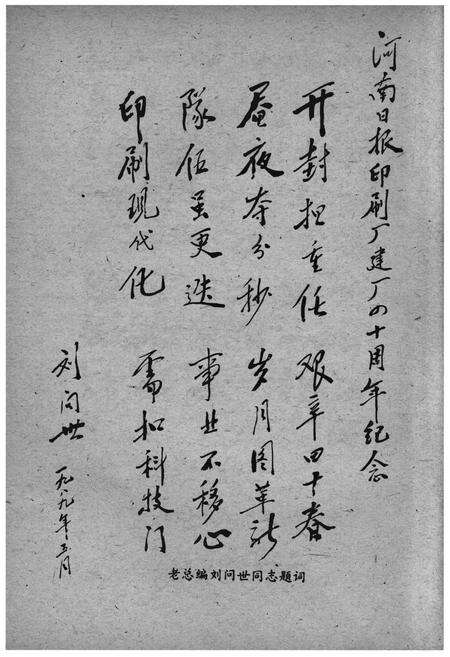 河南日报印刷厂建厂四十周年纪念
开封担重任 艰辛四十春
昼夜夺分秒 岁月图革新
队伍虽更迭 事业不移心
印刷现代化 需扣科技门
刘问世 一九八九年五月
老总编刘问世同志题词